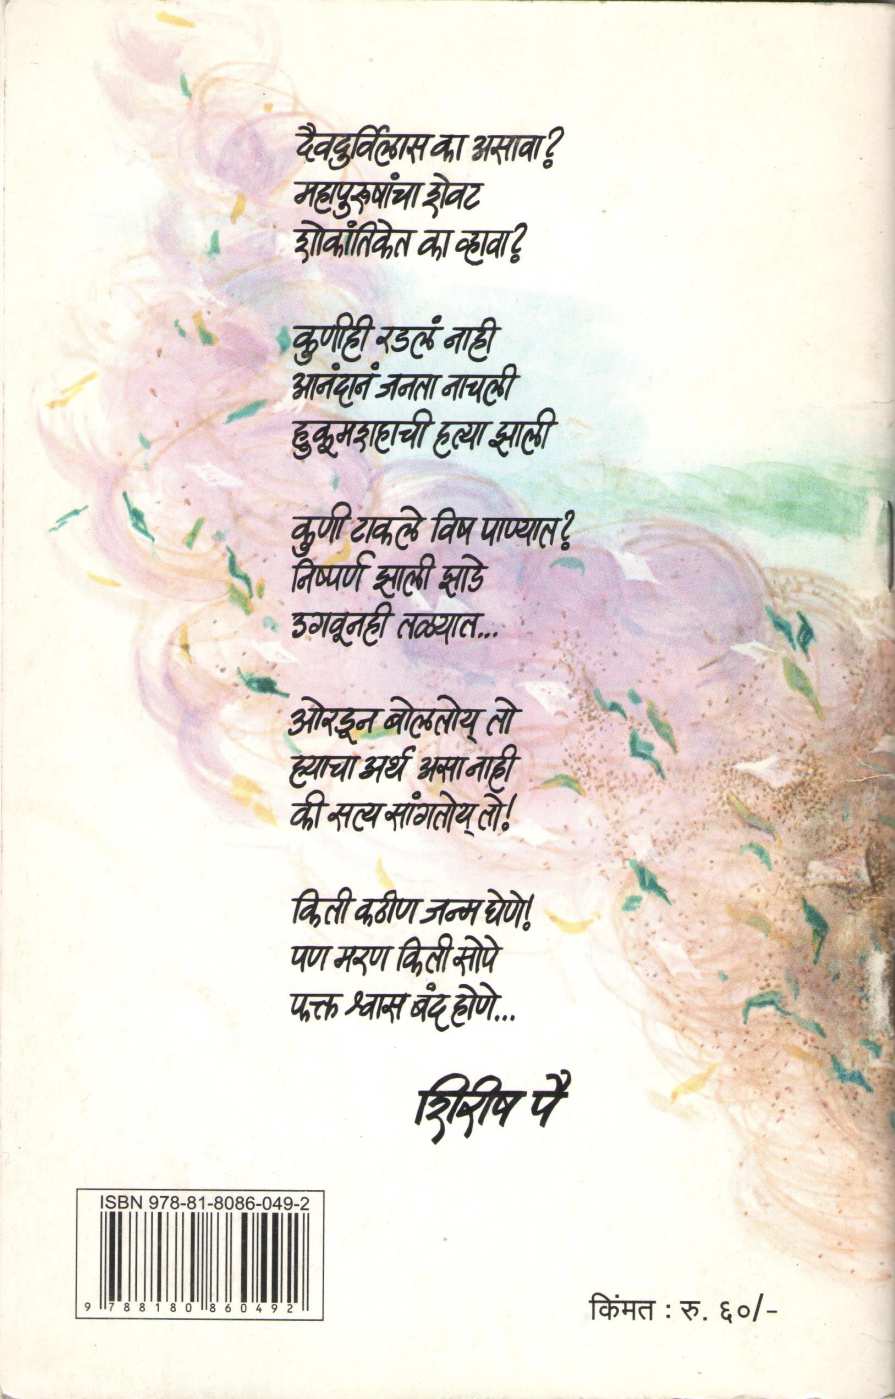 दैवदुर्विलास का असावा?
महापुरुषांचा शेवट
शोकांतिकेत का व्हावा?
कुणीही रडलं नाही
आनंदानं जनता नाचली
हुकूमशहाची हत्या झाली
कुणी टाकले विष पाण्यात?
निष्पर्ण झाली झाडे
उगवूनही तळ्यात...
ओरडून बोलतोय् तो
ह्याचा अर्थ असा नाही
की सत्य सांगतोय् तो!
किती कठीण जन्म घेणे!
पण मरण किती सोपे
फक्त श्वास बंद होणे...
शिरीष पै
ISBN 978-81-8086-049-2
9 788180 860492
किंमत : रु. ६०/-